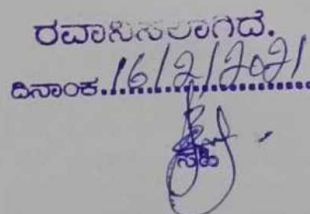 ರವಾನಿಸಲಾಗಿದೆ.
ದಿನಾಂಕ..16/2/2021
ಸಹಿ